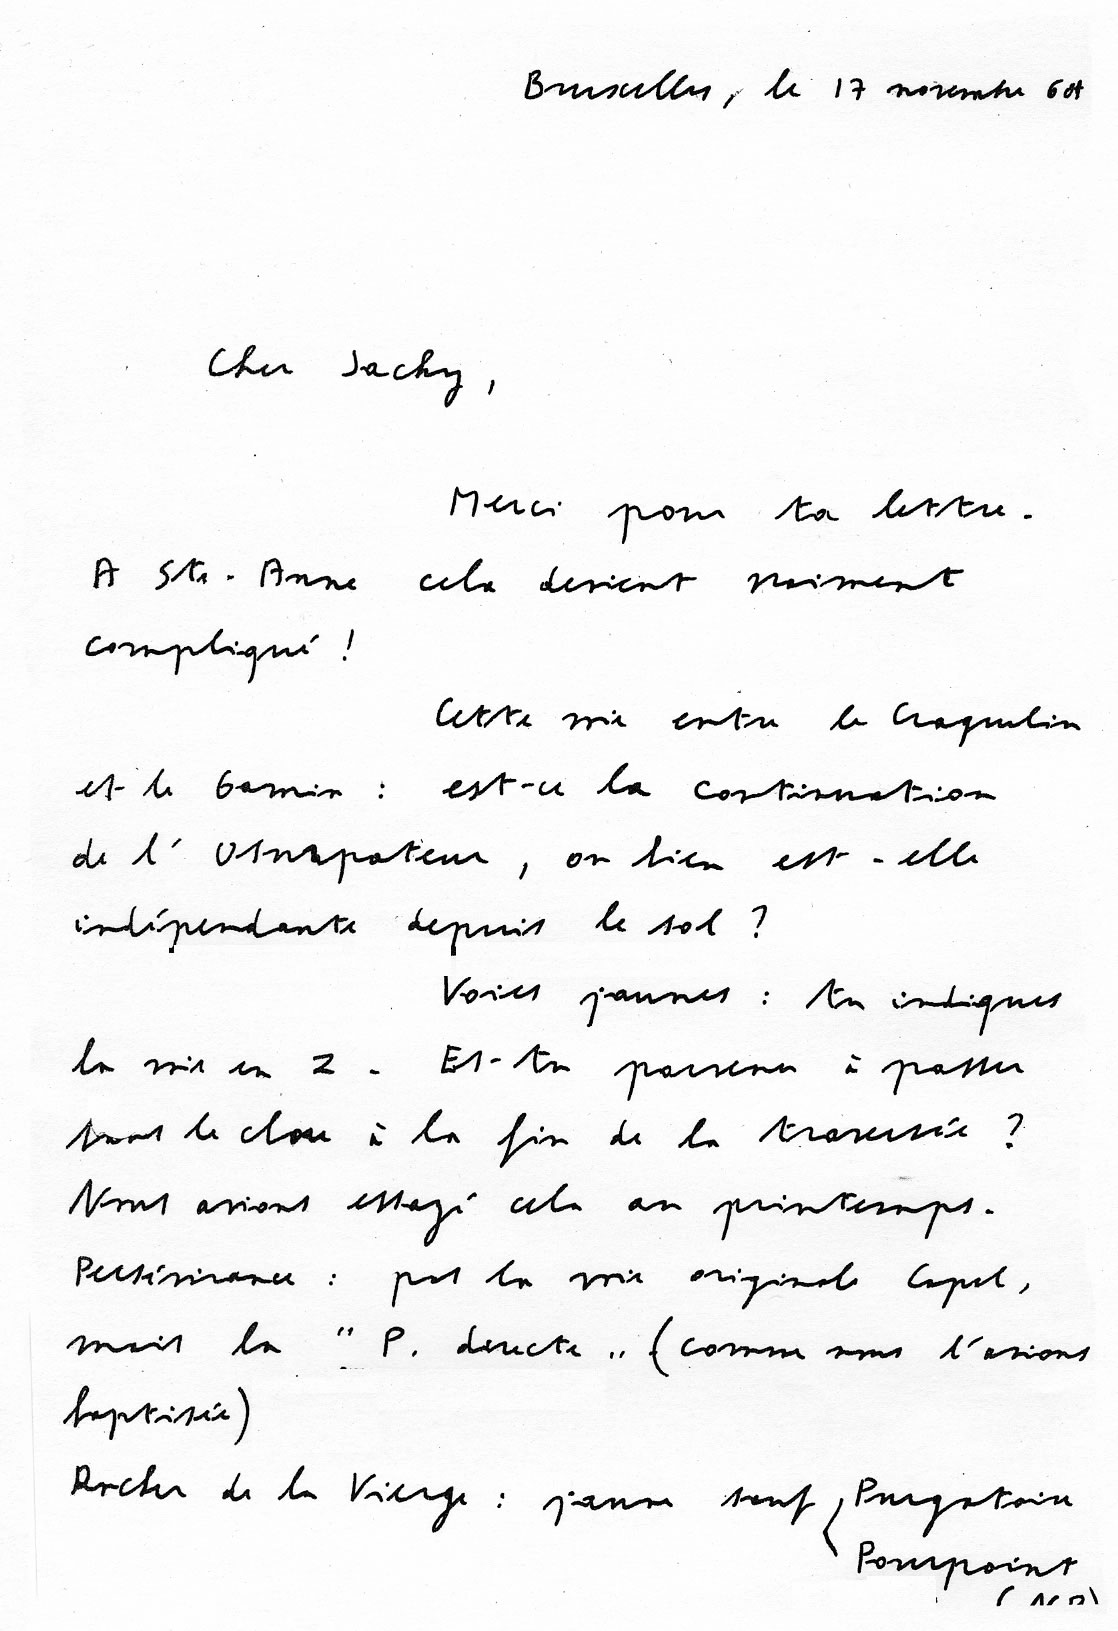 Bruxelles, le 17 novembre 64
Cher Jacky,
Merci pour ta lettre.
A Ste. Anne cela devient vraiment
compliqué !
Cette voie entre le Craquelin
et le Gamin : est-ce la continuation
de l'Usurpateur, ou bien est-elle
indépendante depuis le sol ?
Voies jaunes : tu indiques
la voie en Z. Es-tu parvenu à passer
sans le clou à la fin de la traversée ?
Nous avions essayé cela au printemps.
Persévérance : pas la voie originale Capel,
mais la "P. directe" (comme nous l'avions
baptisée)
Rocher de la Vierge : jaune sauf Purgatoire
Pourpoint